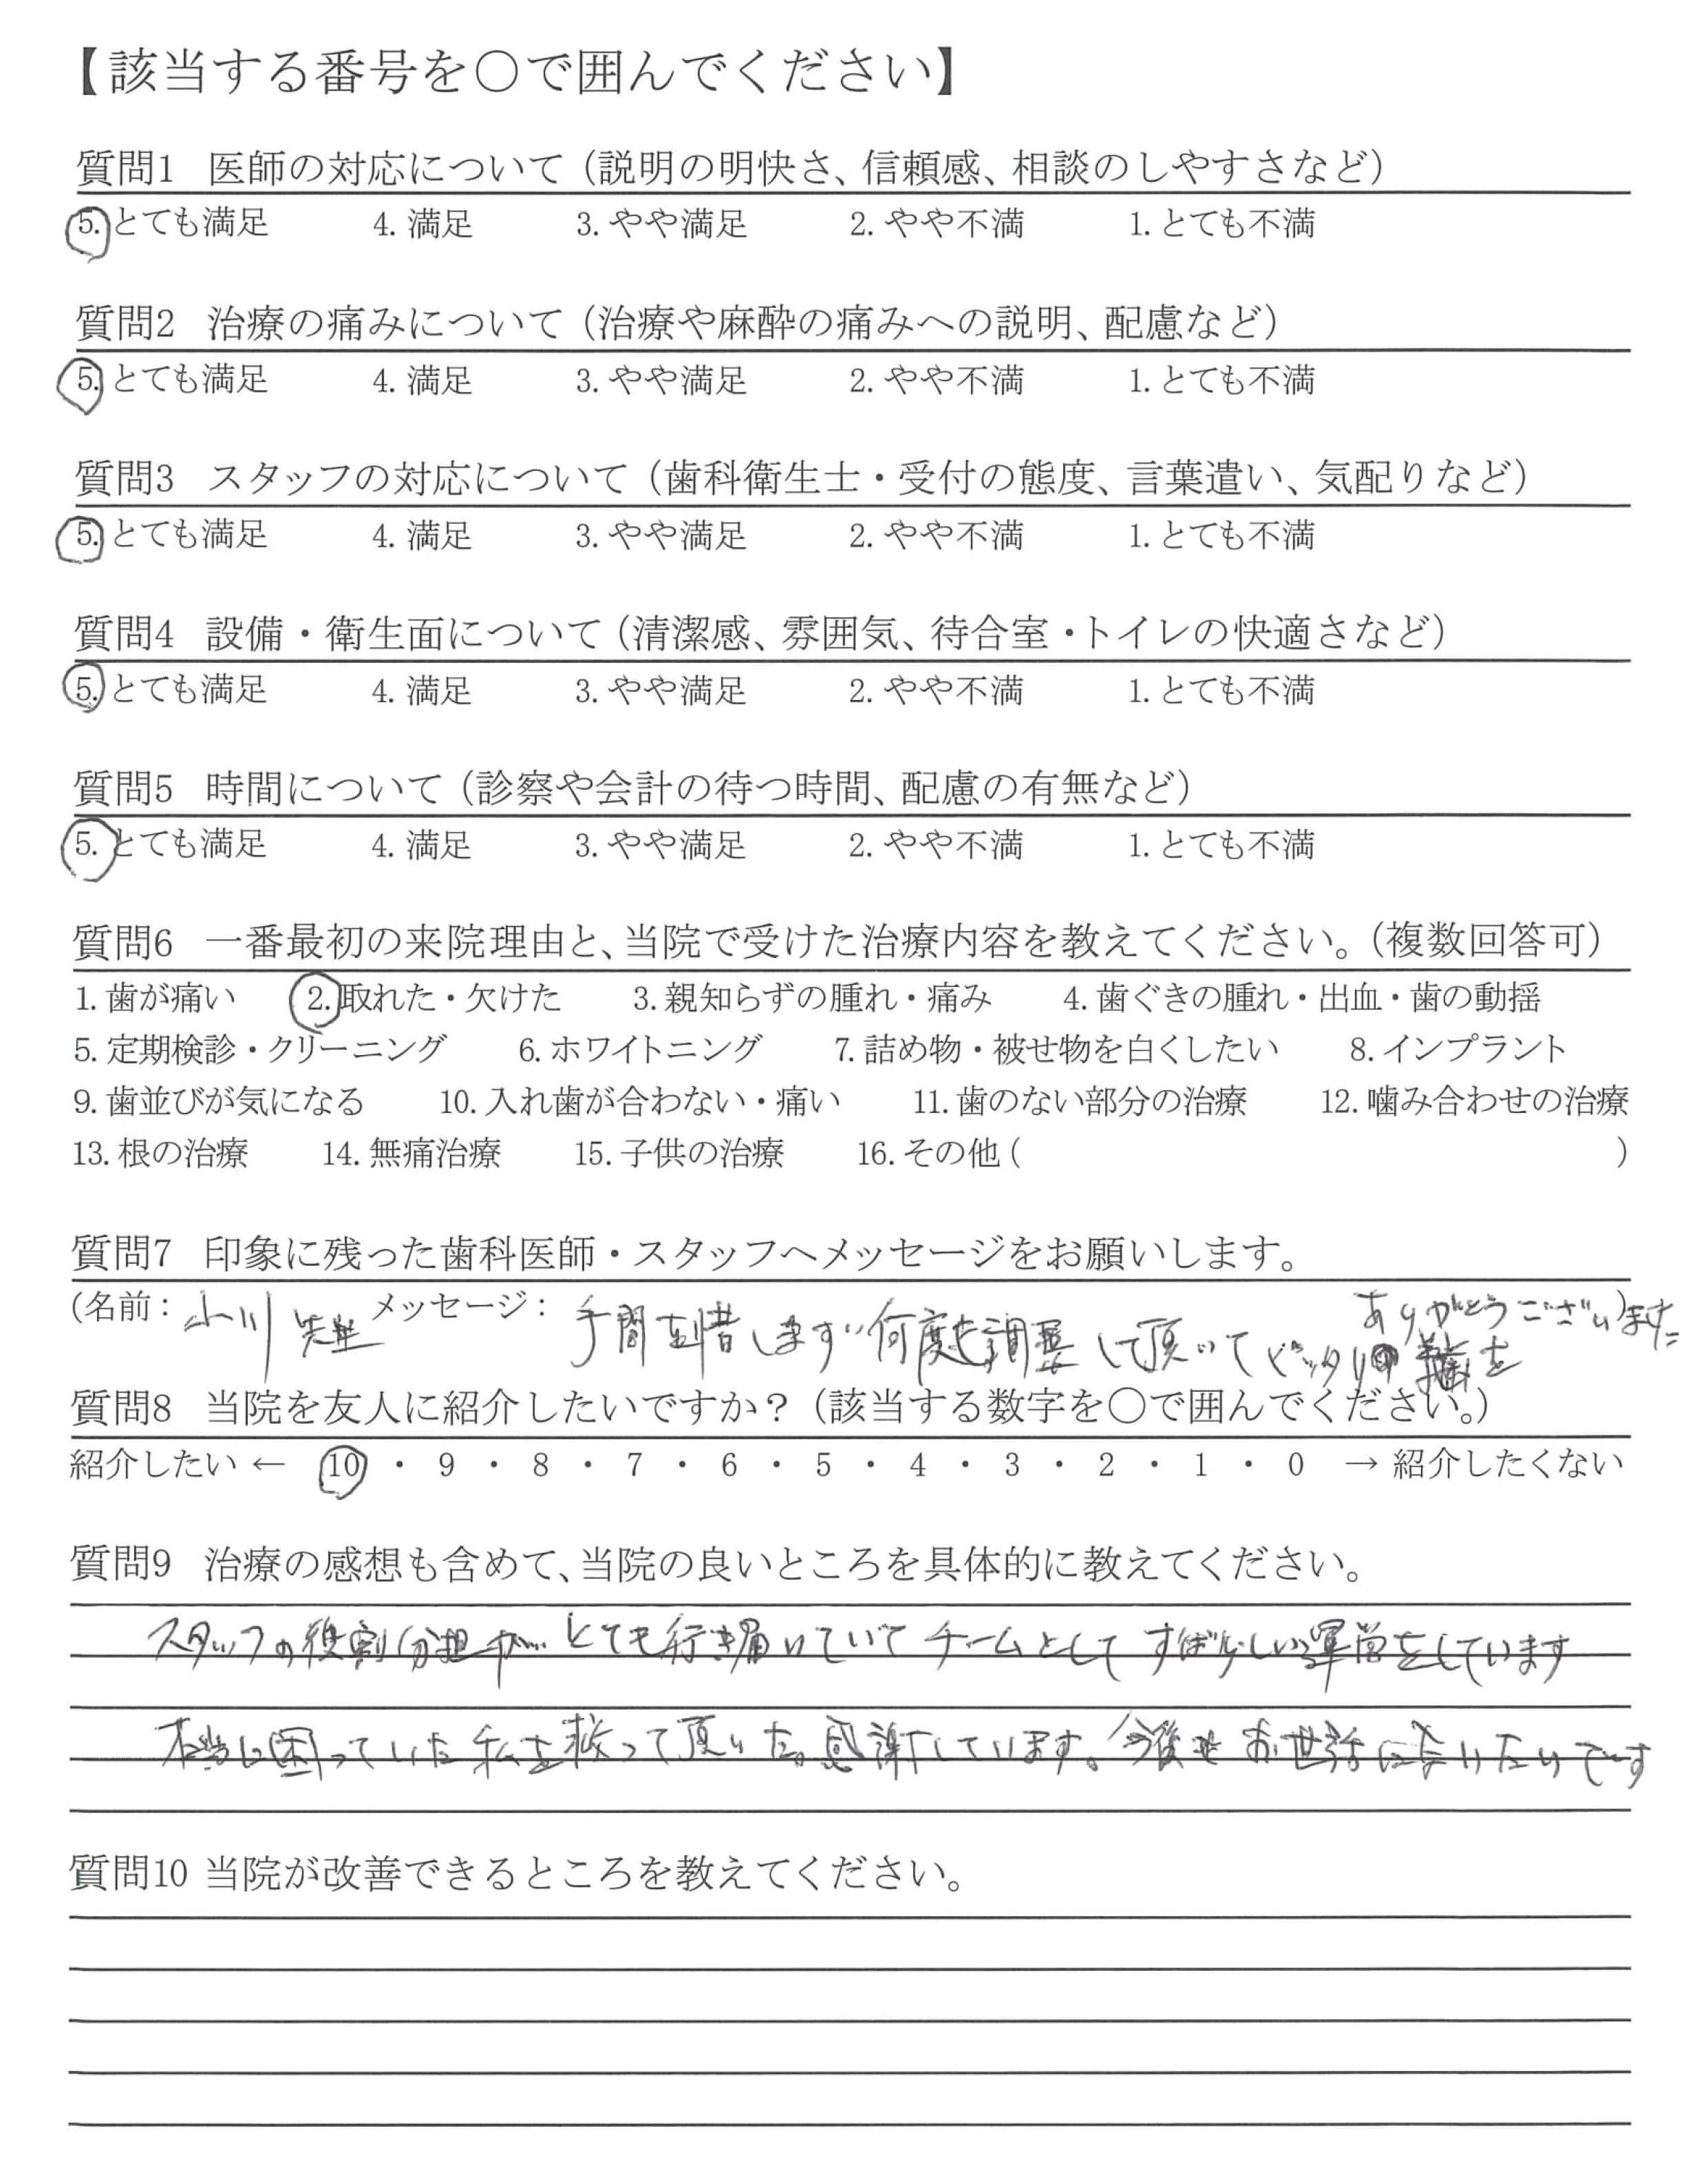 【該当する番号を〇で囲んでください】
質問1 医師の対応について（説明の明快さ、信頼感、相談のしやすさなど）
5. とても満足 4. 満足 3. やや満足 2. やや不満 1. とても不満
質問2 治療の痛みについて（治療や麻酔の痛みへの説明、配慮など）
5. とても満足 4. 満足 3. やや満足 2. やや不満 1. とても不満
質問3 スタッフの対応について（歯科衛生士・受付の態度、言葉遣い、気配りなど）
5. とても満足 4. 満足 3. やや満足 2. やや不満 1. とても不満
質問4 設備・衛生面について（清潔感、雰囲気、待合室・トイレの快適さなど）
5. とても満足 4. 満足 3. やや満足 2. やや不満 1. とても不満
質問5 時間について（診察や会計の待つ時間、配慮の有無など）
5. とても満足 4. 満足 3. やや満足 2. やや不満 1. とても不満
質問6 一番最初の来院理由と、当院で受けた治療内容を教えてください。（複数回答可）
1. 歯が痛い 2. 取れた・欠けた 3. 親知らずの腫れ・痛み 4. 歯ぐきの腫れ・出血・歯の動揺
5. 定期検診・クリーニング 6. ホワイトニング 7. 詰め物・被せ物を白くしたい 8. インプラント
9. 歯並びが気になる 10. 入れ歯が合わない・痛い 11. 歯のない部分の治療 12. 噛み合わせの治療
13. 根の治療 14. 無痛治療 15. 子供の治療 16. その他（ ）
質問7 印象に残った歯科医師・スタッフへメッセージをお願いします。
（名前：小川 先生 メッセージ：手間を惜しまず何度も調整して頂いてピッタリの歯を
ありがとうございました）
質問8 当院を友人に紹介したいですか？（該当する数字を〇で囲んでください。）
紹介したい ← 10 ・ 9 ・ 8 ・ 7 ・ 6 ・ 5 ・ 4 ・ 3 ・ 2 ・ 1 ・ 0 → 紹介したくない
質問9 治療の感想も含めて、当院の良いところを具体的に教えてください。
スタッフの役割分担が とても行き届いていて チームとして すばらしい運営をしています
本当に困っていた私を救って頂いた。感謝しています。今後も お世話になりたいです
質問10 当院が改善できるところを教えてください。